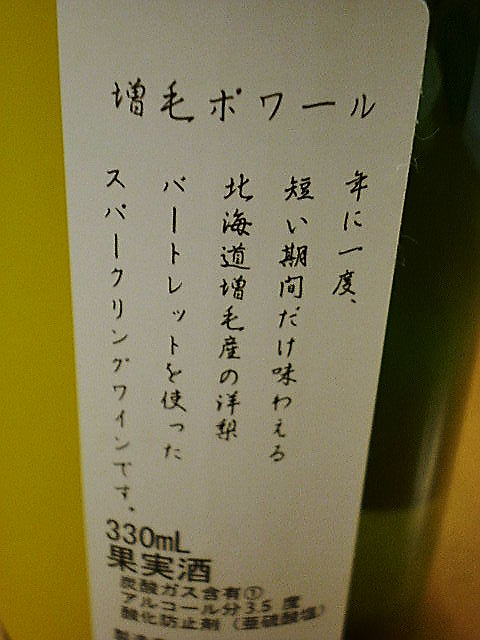 増毛ポワール
年に一度、
短い期間だけ味わえる
北海道増毛産の洋梨
バートレットを使った
スパークリングワインです。
330mL
果実酒
炭酸ガス含有①
アルコール分3.5度
酸化防止剤（亜硫酸塩）